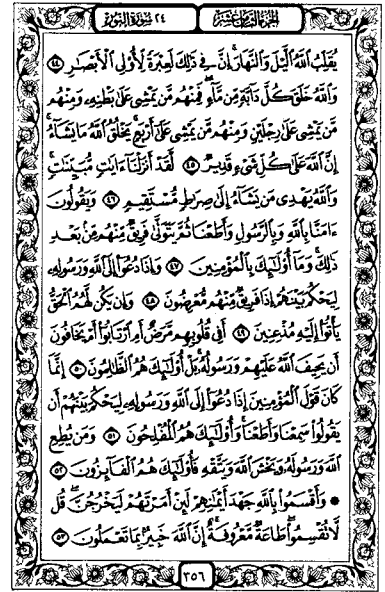 الجزء الثامن عشر ٢٤ سورة النور
يُقَلِّبُ ٱللَّهُ ٱلَّيْلَ وَٱلنَّهَارَ إِنَّ فِى ذَٰلِكَ لَعِبْرَةً لِّأُو۟لِى ٱلْأَبْصَٰرِ ٤٤
وَٱللَّهُ خَلَقَ كُلَّ دَآبَّةٍ مِّن مَّآءٍ فَمِنْهُم مَّن يَمْشِى عَلَىٰ بَطْنِهِۦ وَمِنْهُم
مَّن يَمْشِى عَلَىٰ رِجْلَيْنِ وَمِنْهُم مَّن يَمْشِى عَلَىٰٓ أَرْبَعٍ يَخْلُقُ ٱللَّهُ مَا يَشَآءُ
إِنَّ ٱللَّهَ عَلَىٰ كُلِّ شَىْءٍ قَدِيرٌ ٤٥ لَّقَدْ أَنزَلْنَآ ءَايَٰتٍ مُّبَيِّنَٰتٍ
وَٱللَّهُ يَهْدِى مَن يَشَآءُ إِلَىٰ صِرَٰطٍ مُّسْتَقِيمٍ ٤٦ وَيَقُولُونَ
ءَامَنَّا بِٱللَّهِ وَبِٱلرَّسُولِ وَأَطَعْنَا ثُمَّ يَتَوَلَّىٰ فَرِيقٌ مِّنْهُم مِّنۢ بَعْدِ
ذَٰلِكَ وَمَآ أُو۟لَٰٓئِكَ بِٱلْمُؤْمِنِينَ ٤٧ وَإِذَا دُعُوٓا۟ إِلَى ٱللَّهِ وَرَسُولِهِۦ
لِيَحْكُمَ بَيْنَهُمْ إِذَا فَرِيقٌ مِّنْهُم مُّعْرِضُونَ ٤٨ وَإِن يَكُن لَّهُمُ ٱلْحَقُّ
يَأْتُوٓا۟ إِلَيْهِ مُذْعِنِينَ ٤٩ أَفِى قُلُوبِهِم مَّرَضٌ أَمِ ٱرْتَابُوٓا۟ أَمْ يَخَافُونَ
أَن يَحِيفَ ٱللَّهُ عَلَيْهِمْ وَرَسُولُهُۥ بَلْ أُو۟لَٰٓئِكَ هُمُ ٱلظَّٰلِمُونَ ٥٠ إِنَّمَا
كَانَ قَوْلَ ٱلْمُؤْمِنِينَ إِذَا دُعُوٓا۟ إِلَى ٱللَّهِ وَرَسُولِهِۦ لِيَحْكُمَ بَيْنَهُمْ أَن
يَقُولُوا۟ سَمِعْنَا وَأَطَعْنَا وَأُو۟لَٰٓئِكَ هُمُ ٱلْمُفْلِحُونَ ٥١ وَمَن يُطِعِ
ٱللَّهَ وَرَسُولَهُۥ وَيَخْشَ ٱللَّهَ وَيَتَّقْهِ فَأُو۟لَٰٓئِكَ هُمُ ٱلْفَآئِزُونَ ٥٢
۞ وَأَقْسَمُوا۟ بِٱللَّهِ جَهْدَ أَيْمَٰنِهِمْ لَئِنْ أَمَرْتَهُمْ لَيَخْرُجُنَّ قُل
لَّا تُقْسِمُوا۟ طَاعَةٌ مَّعْرُوفَةٌ إِنَّ ٱللَّهَ خَبِيرٌۢ بِمَا تَعْمَلُونَ ٥٣
٣٥٦